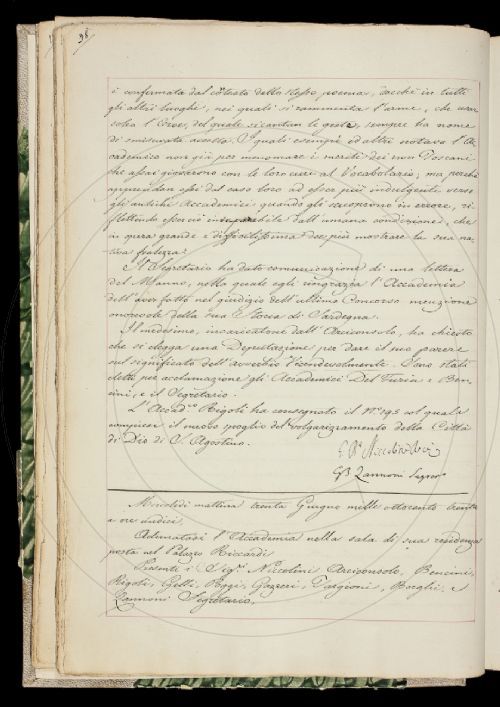 98
è confermata dal contesto dello stesso poema, dacchè in tutti
gli altri luoghi, nei quali si rammenta l'arme, che usar
solea l'Eroe, del quale si cantan le gesta, sempre ha nome
di smisurata accetta. I quali esempi ed altri notava l'Ac-
cademico non già per menomare i meriti dei suoi Toscani
che assai giovarono con le loro cure al Vocabolario, ma perchè
apprendan essi dal caso loro ad esser più indulgenti verso
gli antichi Accademici quando gli scuoprono in errore, ri-
flettendo esser ciò inseparabile dall'umana condizione, che
in opera grande e difficilissima dee più mostrare la sua na-
tiva fralezza.
Il Segretario ha dato comunicazione di una lettera
del Manno, nella quale egli ringrazia l'Accademia
dell'aver fatto nel giudizio dell'ultimo Concorso menzione
onorevole della sua Storia di Sardegna.
Il medesimo, incaricatone dall'Arciconsolo, ha chiesto
che si elegga una Deputazione per dare il suo parere
sul significato dell'avverbio Vicendevolmente. Sono stati
eletti per acclamazione gli Accademici Del Furia e Ben-
cini, e il Segretario.
L'Accad.co Rigoli ha consegnato il N.o 195 col quale
compisce il nuovo spoglio del volgarizzamento della Città
di Dio di S. Agostino.
G. Ba Niccolini
GB Zannoni Segret.o
Mercoledì mattina trenta Giugno mille ottocento trenta
a ore undici.
Adunatasi l'Accademia nella sala di sua residenza
posta nel Palazzo Riccardi
Presenti i Sig.ri Niccolini Arciconsolo, Bencini,
Rigoli, Gelli, Poggi, Gazzeri, Targioni, Borghi, e
Zannoni Segretario.